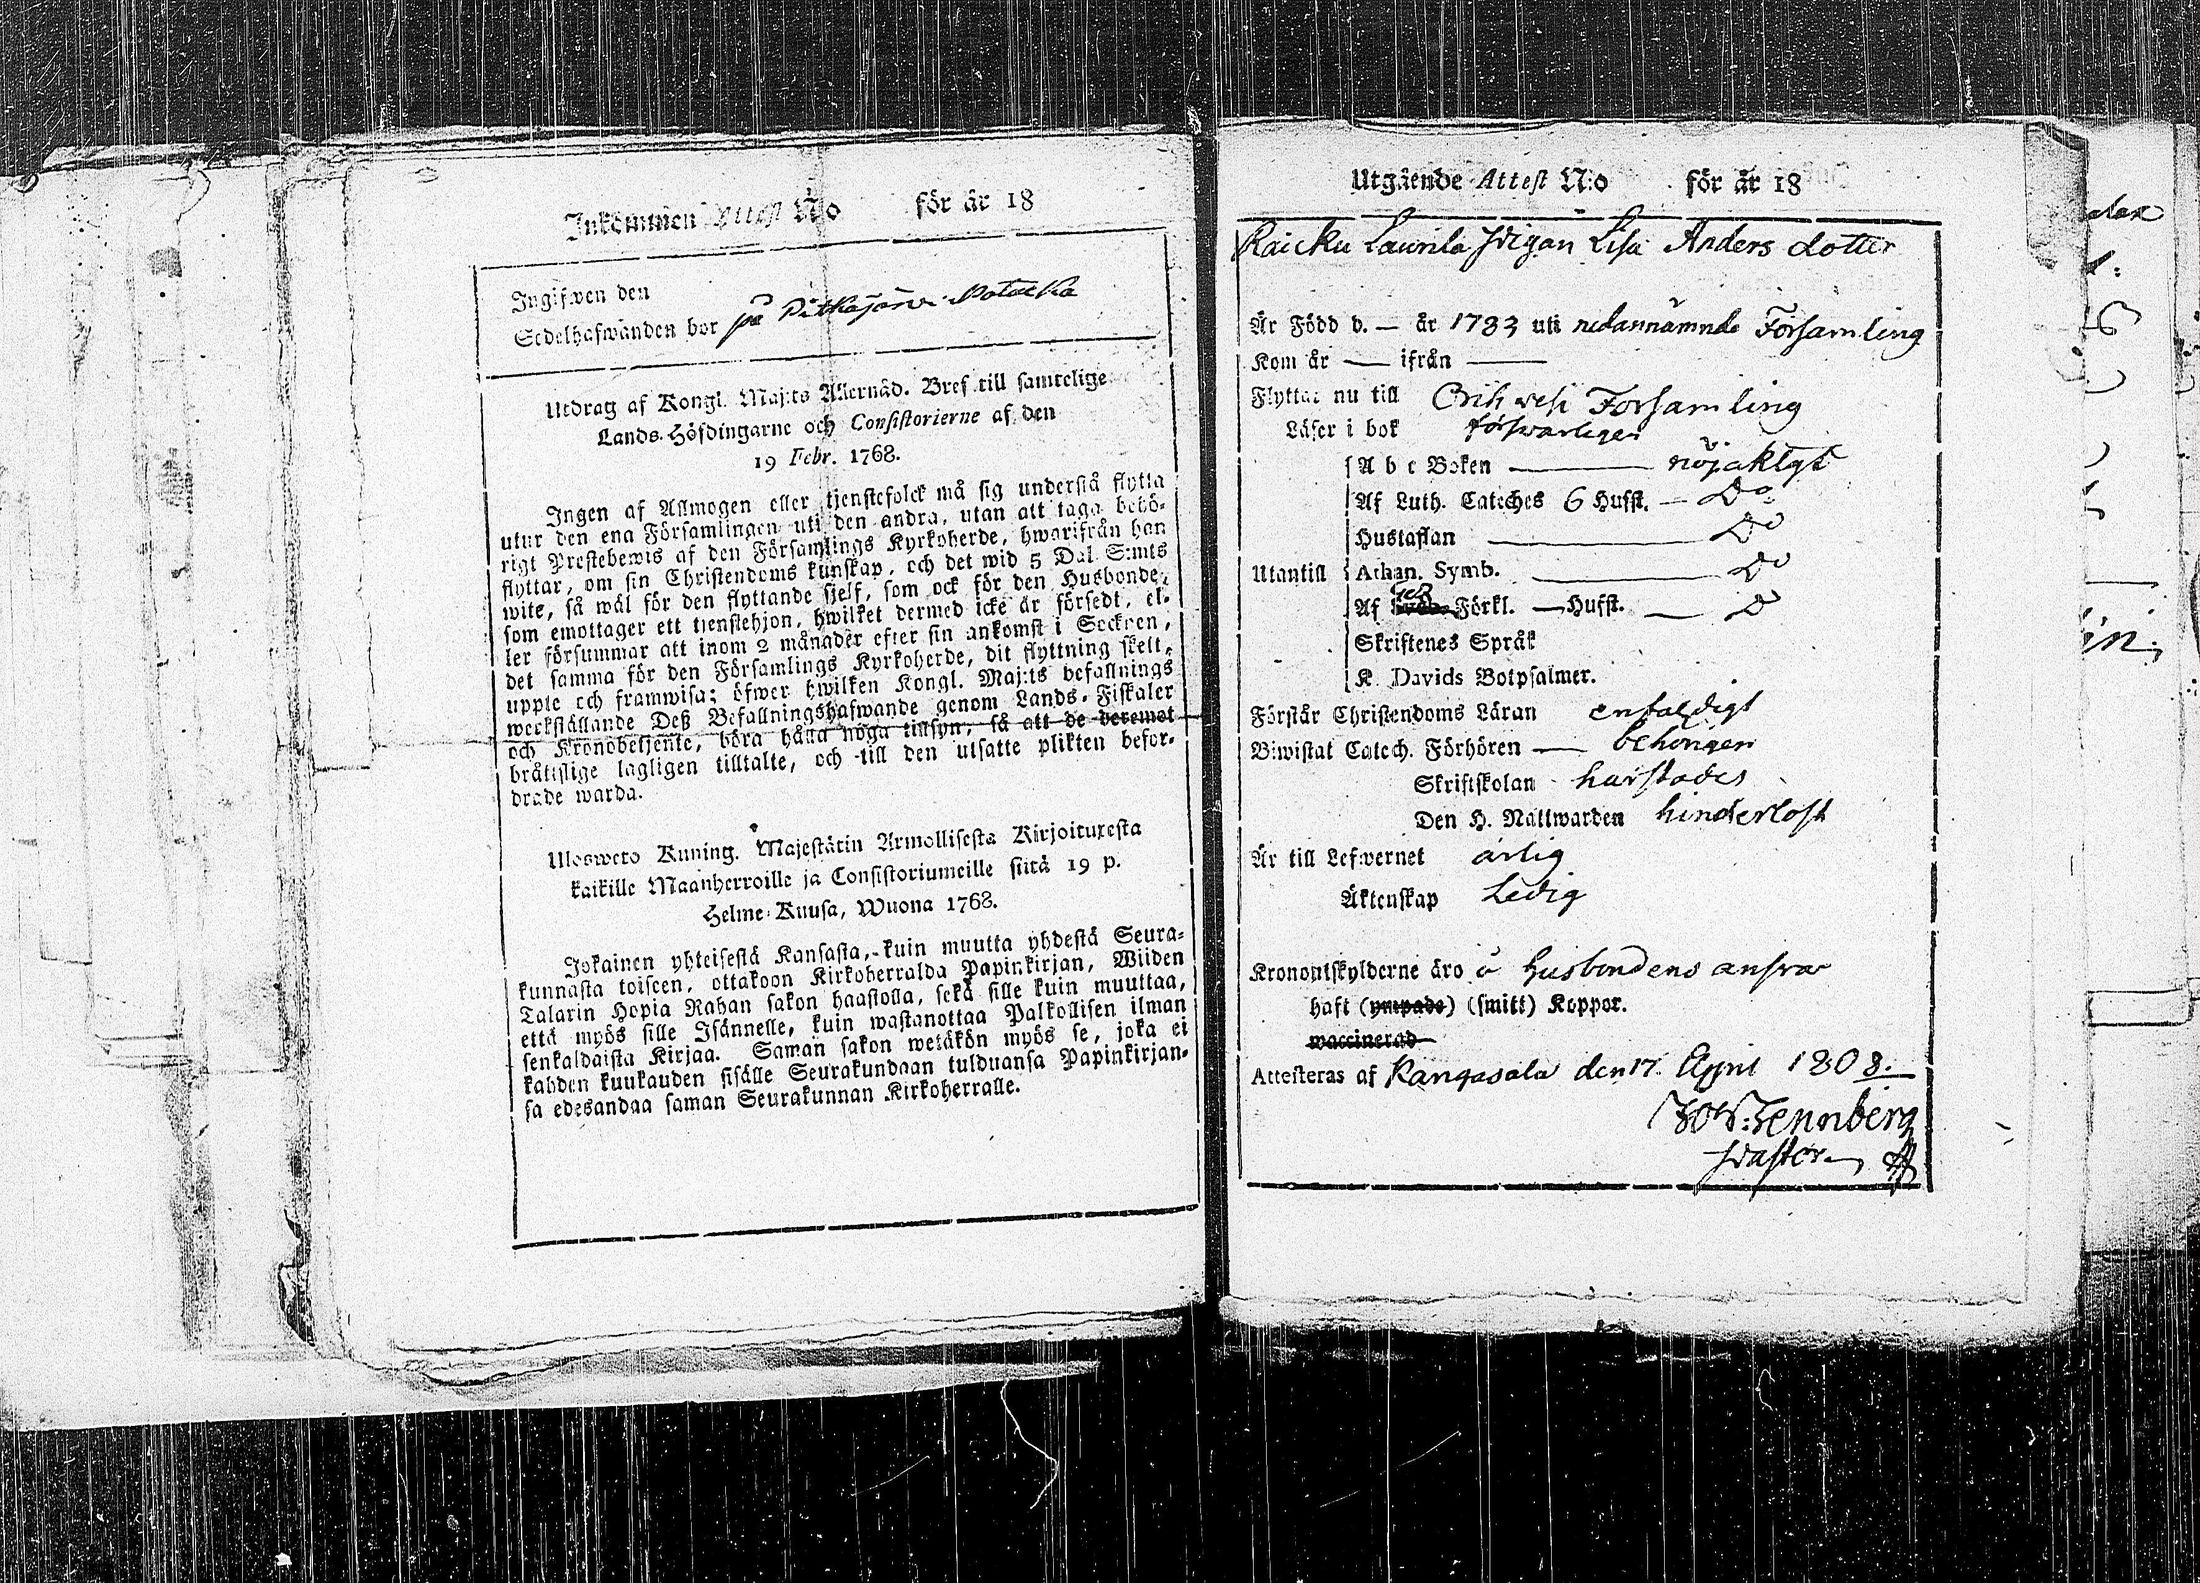 Inkommen Attest N:o för år 18
Ingifwen den
Sedelhafwanden bor på Pitkäjärvi Matecka
Utdrag af Kongl. Maj:ts Allernåd. Bref till samtelige
Lands-Höfdingarne och Consistorierne af den
19 Febr. 1768.
Ingen af Allmogen eller tjenstefolck må sig understå flytta
utur den ena Församlingen uti den andra, utan att taga behö-
rigt Prestebewis af den Församlings Kyrkoherde, hwarifrån han
flyttar, om sin Christendoms kunskap, och det wid 5 Dal. S:mts
wite, så wäl för den flyttande sjelf, som ock för den Husbonde,
som emottager ett tjenstehjon, hwilket dermed icke är försedt, el-
ler försummar att inom 2 månader efter sin ankomst i Socknen,
det samma för den Församlings Kyrkoherde, dit flyttning skett,
upple och framwisa; öfwer hwilken Kongl. Maj:ts befallnings
werkställande Deß Befallningshafwande genom Lands-Fiskaler
och Kronobetjente, böra hålla noga tillsyn, så att de deremot
bråtislige lagligen tilltalte, och till den utsatte plikten befor-
drade warda.
Ulosweto Kuning. Majestätin Armollisesta Kirjoituxesta
kaikille Maanherroille ja Consistoriumeille siitä 19 p.
Helme-Kuusa, Wuona 1768.
Jokainen yhteisestä Kansasta, kuin muutta yhdestä Seura-
kunnasta toiseen, ottakoon Kirkoherralda Papinkirjan, Wiiden
Talarin Hopia Rahan sakon haastolla, sekä sille kuin muuttaa,
että myös sille Isännelle, kuin wastanottaa Palkollisen ilman
senkaldaista Kirjaa. Saman sakon wetäkön myös se, joka ei
kahden kuukauden sisälle Seurakundaan tulduansa Papinkirjan-
sa edesandaa saman Seurakunnan Kirkoherralle.
Utgående Attest N:o för år 18
Raicku Laurila Pigan Lisa Anders dotter
Är Född d. — år 1783 uti nedannämnde Församling
Kom år — ifrån —
Flyttar nu till Orihvesi Forsamling
Läser i bok försvarligen
A b c Boken — nöjaktgt
Af Luth. Cateches 6 Hufst. — Do
Hustaflan — Do
Utantill Athan. Symb. — Do
Af Förkl. — Hufst. — D
Skriftenes Språk
K. Davids Botpsalmer.
Förstår Christendoms Läran enfaldigt
Biwistat Catech. Förhören — behörigen
Skriftskolan
Den H. Nattwarden hinderlöst
Är till Lefwernet ärlig
Äktenskap Ledig
Kronoutskylderne äro å Husbondens ansvar
haft (ympade) (smitt) Koppor.
waccinerad
Attesteras af Kangasala den 17. April 1808.
Joh: Tennberg
Pastor